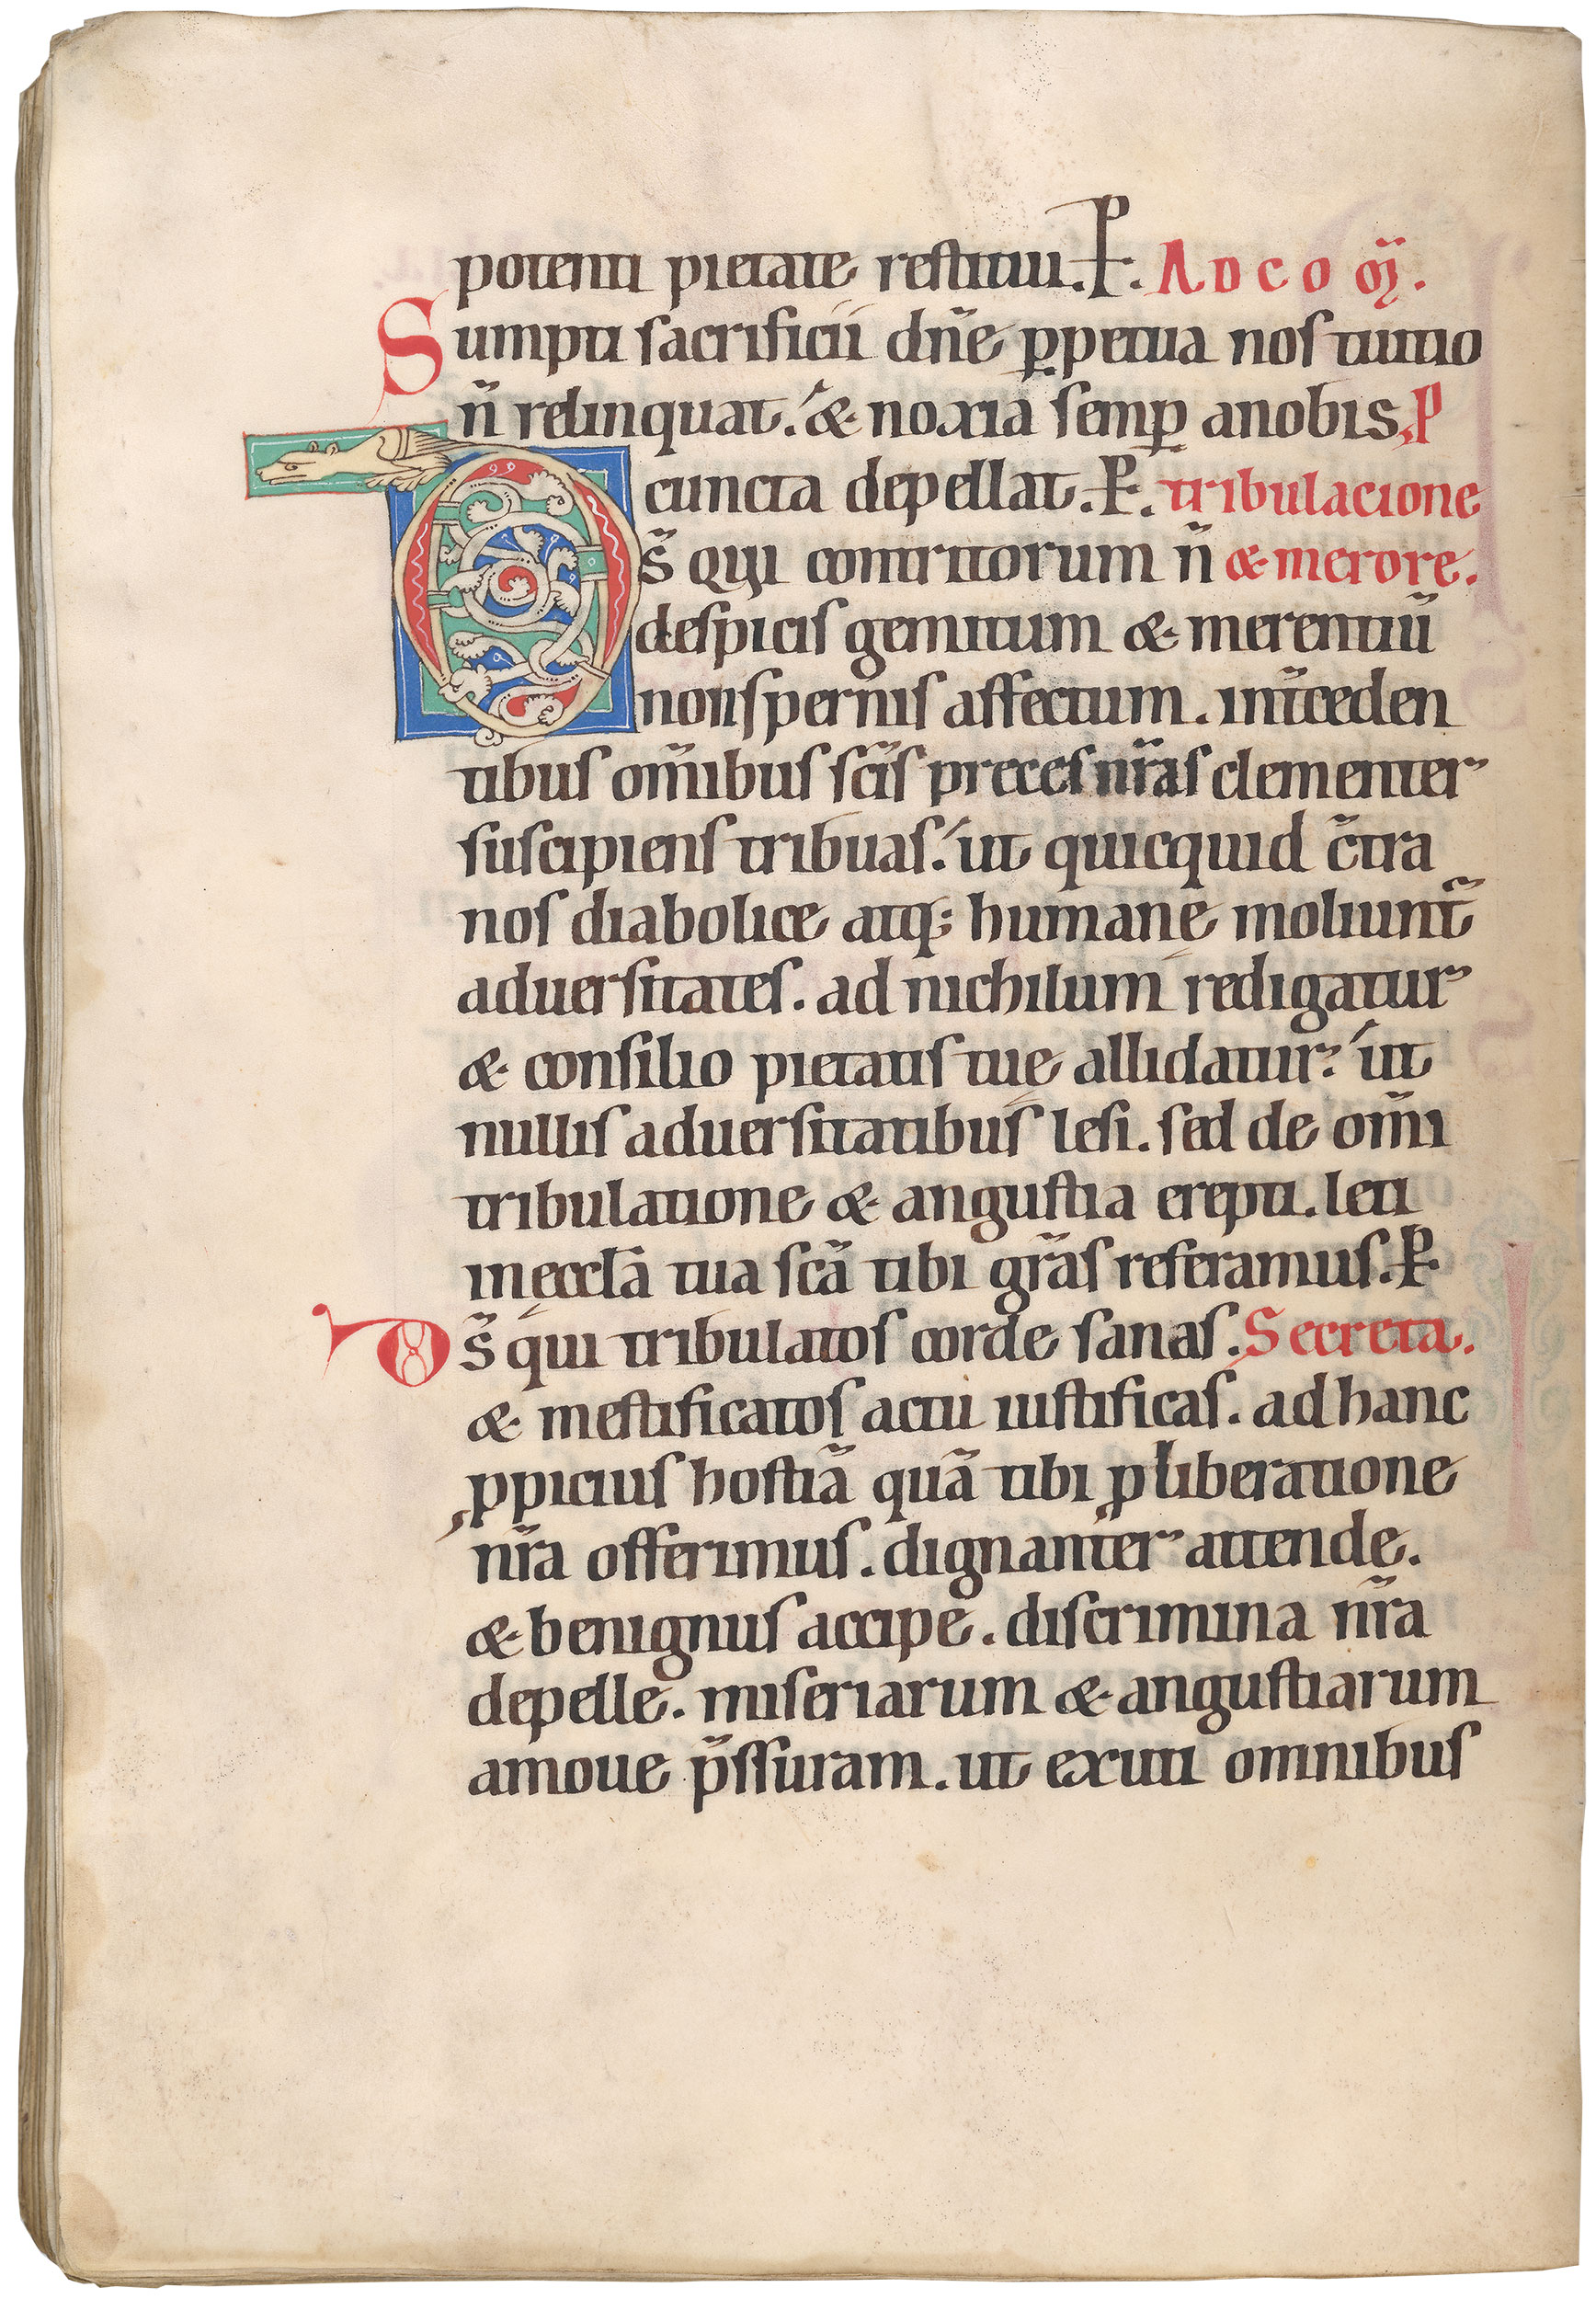 potenti pietate restitui. P. AD COM̃.
Sumpti sacrificii dñe ꝑpetua nos tuitio
ñ relinquat. & noxia semꝑ a nobis P
cuncta depellat. P. tribulacione
Ds̃ qui contritorum ñ & merore.
despicis gemitum & merentiũ
non spernis affectum. int̃ceden
tibus om̃ibus sc̃is preces nr̃as clementer
suscipiens tribuas. ut quicquid c̃tra
nos diabolice atq; humanę moliunt̃
aduersitates. ad nichilum redigatur
& consilio pietatis tuę allidatur. ut
nullis aduersitatibus lesi. sed de om̃i
tribulatione & angustia erepti. leti
in ęccl̃a tua sc̃a tibi gr̃as referamus. P.
Ds̃ qui tribulatos corde sanas. Secreta.
& mestificatos actu iustificas. ad hanc
ꝓpicius hostiã quã tibi ꝓ liberatione
nr̃a offerimus. dignant̃er attende.
& benignus accipe. discrimina nr̃a
depelle. miseriarum & angustiarum
amoue p̃ssuram. ut exuti omnibus